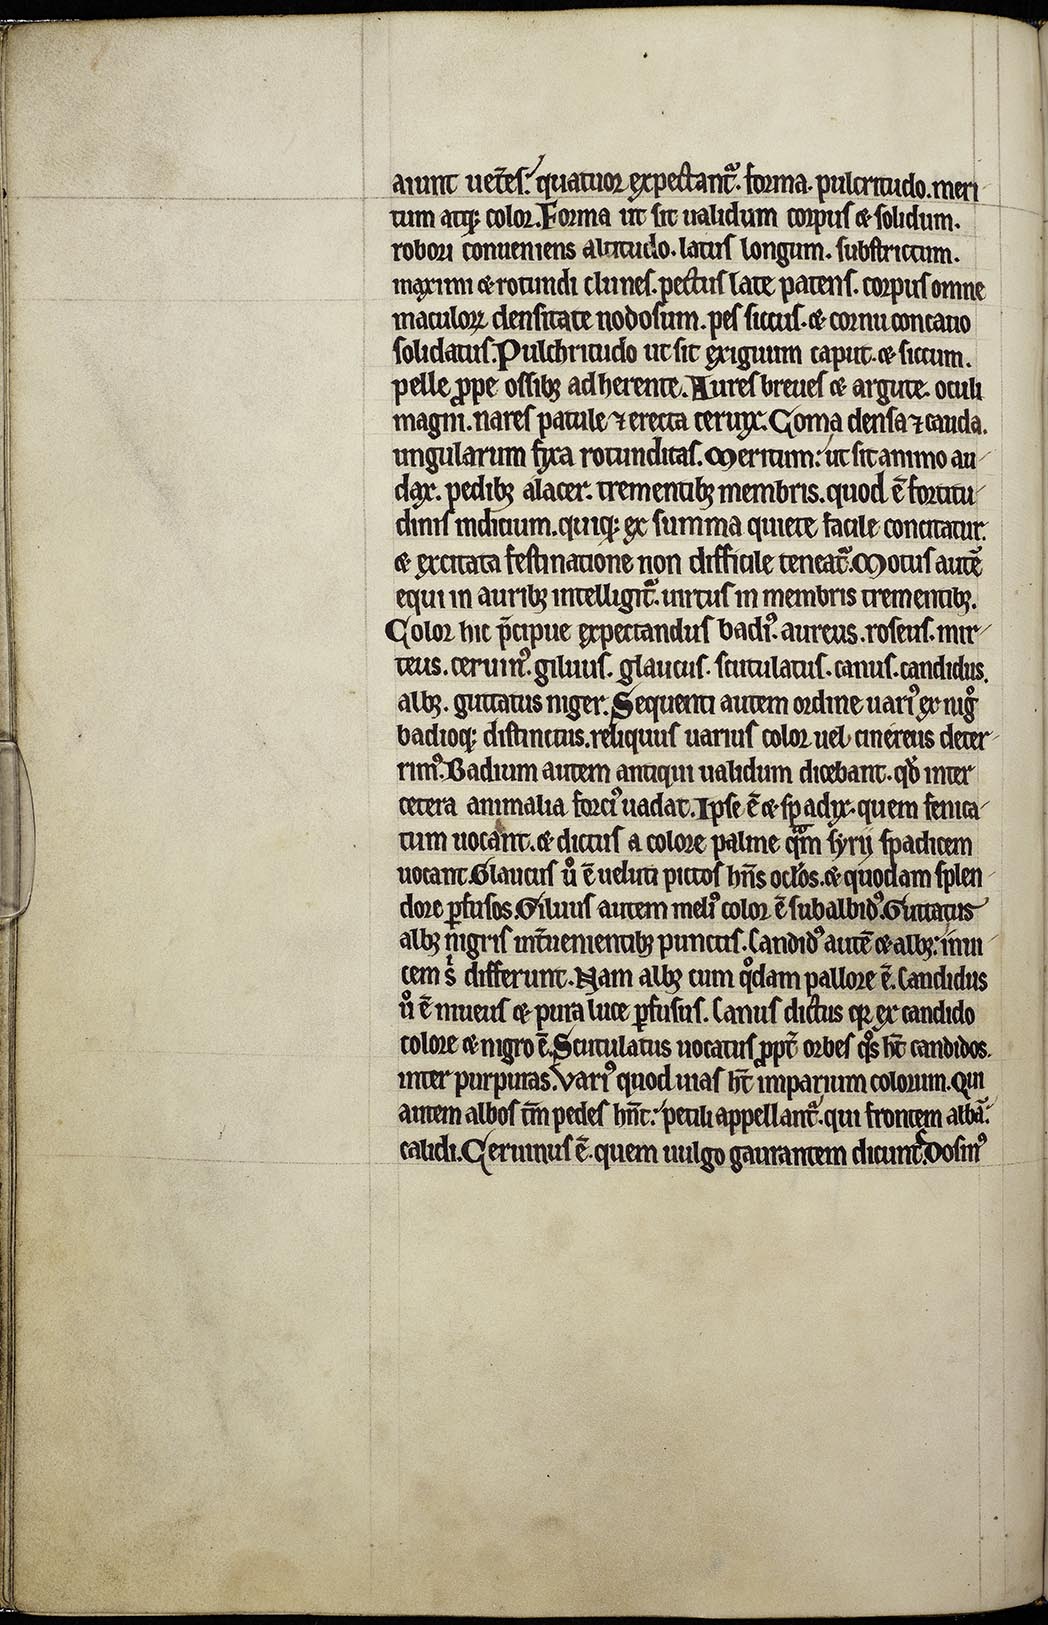 aiunt uet̄es: quatuor expectant᷑. forma. pulcritudo. meri
tum atq; color. Forma ut sit ualidum corpus & solidum.
robori conueniens altitudo. latus longum. substrictum.
maximi & rotundi clunes. pectus late patens. corpus omne
maculoꝝ densitate nodosum. pes siccus. & cornu concauo
solidatus. Pulchritudo ut sit exiguum caput. & siccum.
pelle ꝓpe ossibꝫ adherente. Aures breues & argute. oculi
magni. nares patule ⁊ erecta ceruix. Coma densa ⁊ cauda.
ungularum fixa rotunditas. Meritum: ut sit animo au
dax. pedibꝫ alacer. trementibꝫ membris. quod ē fortitu
dinis indicium. quiq; ex summa quiete facile concitatur.
& excitata festinatione non difficile teneat᷑. Motus autē
equi in auribꝫ intelligit᷑. uirtus in membris trementibꝫ.
Color hic p̄cipue expectandus badiꝰ. aureus. roseus. mir
teus. ceruinꝰ. giluus. glaucus. scutulatus. canus. candidus.
albꝫ. guttatus niger. Sequenti autem ordine uariꝰ ex nigͦ
badioq; distinctus. reliquus uarius color uel cinereus deter
rimꝰ. Badium autem antiqui ualidum dicebant. qđ inter
cetera animalia forciꝰ uadat. Ipse ē & spadix. quem fenica
tum uocant. & dictus a colore palme quͣm syrij spadicem
uocant. Glaucus uͦ ē ueluti pictos hn̄s oclos. & quodam splen
dore ꝑfusos. Giluus autem meliꝰ color ē subalbidꝰ. Guttatus
albꝫ nigris int̄uenientibꝫ punctis. Candidꝰ autē & albꝫ: inui
cem s̄ differunt. Nam albꝫ cum qͦdam pallore ē. Candidus
uͦ ē niueus & pura luce ꝑfusus. Canus dictus qꝛ ex candido
colore & nigro ē. Scutulatus uocatus ꝓpt̄ orbes qͦs ht̄ candidos.
inter purpuras. Variꝰ quod uias ht̄ imparium colorum. Qui
autem albos tm̄ pedes hn̄t: petili appellant᷑. qui frontem albā:
calidi. Ceruinus ē. quem uulgo gaurantem dicunt. Dosinꝰ